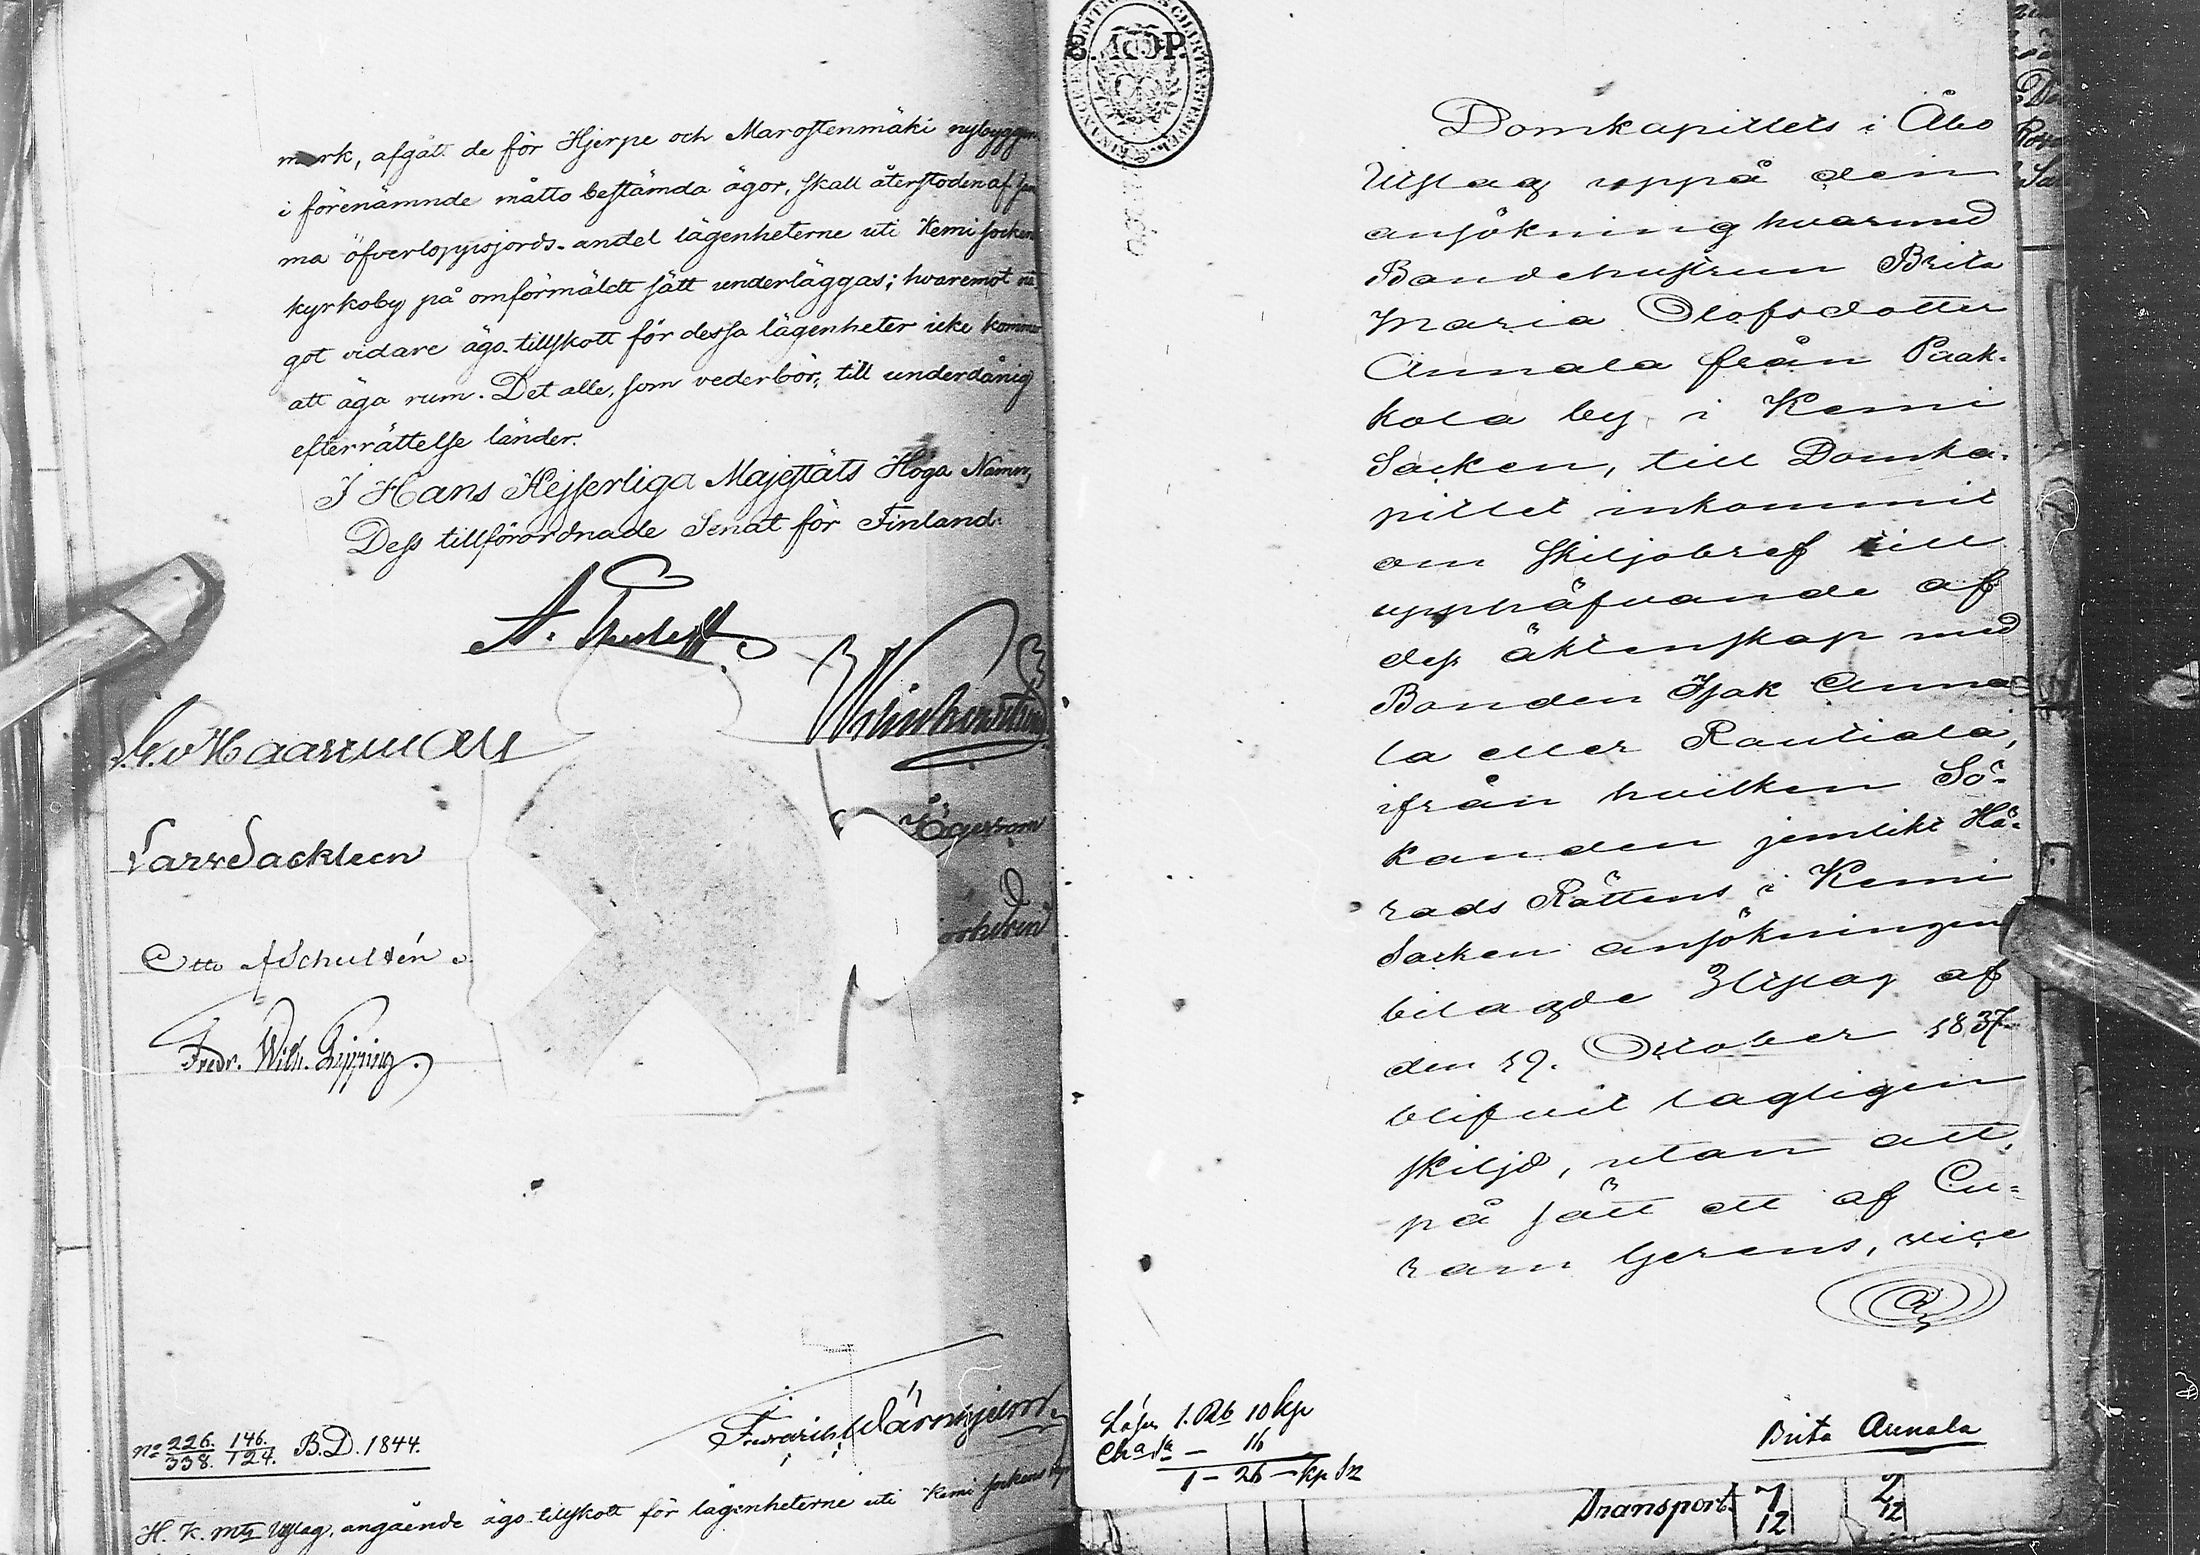 mark, afgått de för Hjerpe och Marostenmäki nybyggen
i förenämnde måtto bestämda ägor, skall återstoden af sam
ma öfverloppsjords-andel lägenheterne uti Kemi sockens
kyrkoby på omförmäldt sätt underläggas; hvaremot nå
got vidare ägo-tillskott för dessa lägenheter icke kommer
att äga rum. Det alle, som vederbör, till underdånig
efterrättelse länder.
I Hans Kejserliga Majestäts Höga Namn,
Dess tillförordnade Senat för Finland.
G. v Haartman
Lars Sackleen
Otto af Schultén
Fredr. Wilh. Pipping.
Fredrich Värnhjelm
No 226. 146. B.D. 1844.
338. 124.
H. K. Mts Utslag, angående ägo-tillskott för lägenheterne uti Kemi sockens
8. 10P.
Domkapitlets i Åbo
Utslag uppå den
ansökning hvarmed
Bondehustrun Brita
Maria Olofsdotter
Annala från Paak-
kola by i Kemi
Socken, till Domka-
pitlet inkommit
om skiljobref till
upphäfvande af
dess äktenskap med
Bonden Isak Anna
la eller Rautiala,
ifrån hvilken Sö-
kanden jemlikt Hä-
rads Rättens i Kemi
Socken ansökningen
bilagde Utslag af
den 19. October 1837
blifvit lagligen
skiljd, utan att,
på sätt ett af Cu-
ram Gerens, vice
Lösen 1. Rb 10 kp
Cha Sa — 16
1 — 26 — kp Sr
Brita Annala
Transport. 7 2
12 12